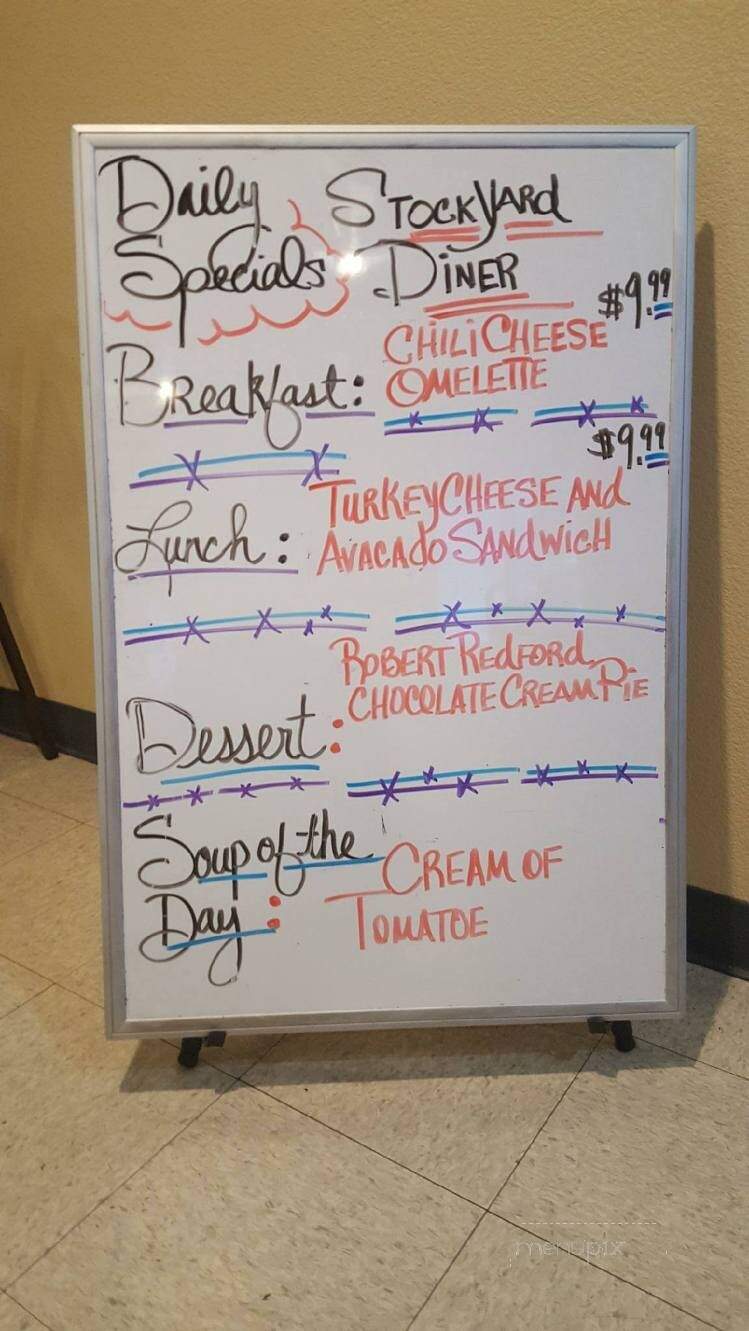 Daily Stockyard
Specials Diner
$9.99
Breakfast: Chili Cheese
Omelette
$9.99
Lunch: Turkey Cheese and
Avacado Sandwich
Robert Redford
Chocolate Cream Pie
Dessert:
Soup of the
Day: Cream of
Tomatoe
menupix